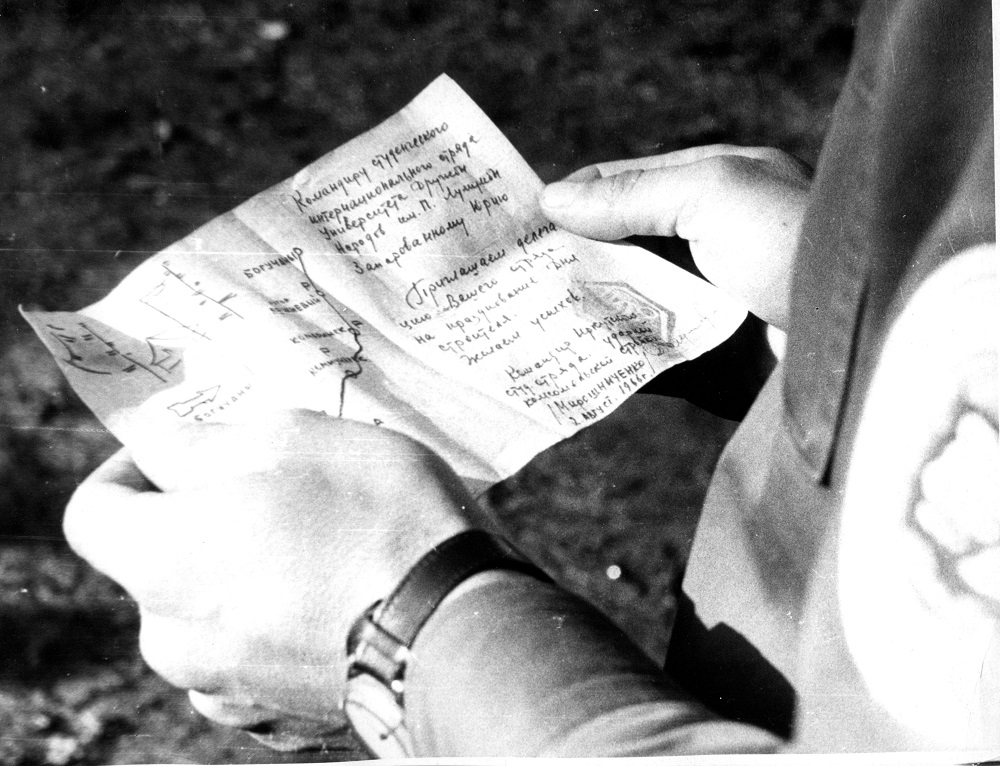 Командиру студенческого
интернационального отряда
Университета Дружбы
Народов им. П. Лумумбы
Заморованному Юрию
Приглашаем делега
цию Вашего отряда
на празднование Дня
строителя.
Желаем успехов.
Командир Иркутского
студ. отряда
комсомольской
/Мирошниченко/
2 август. 1966г.
БОГУЧАНЫ